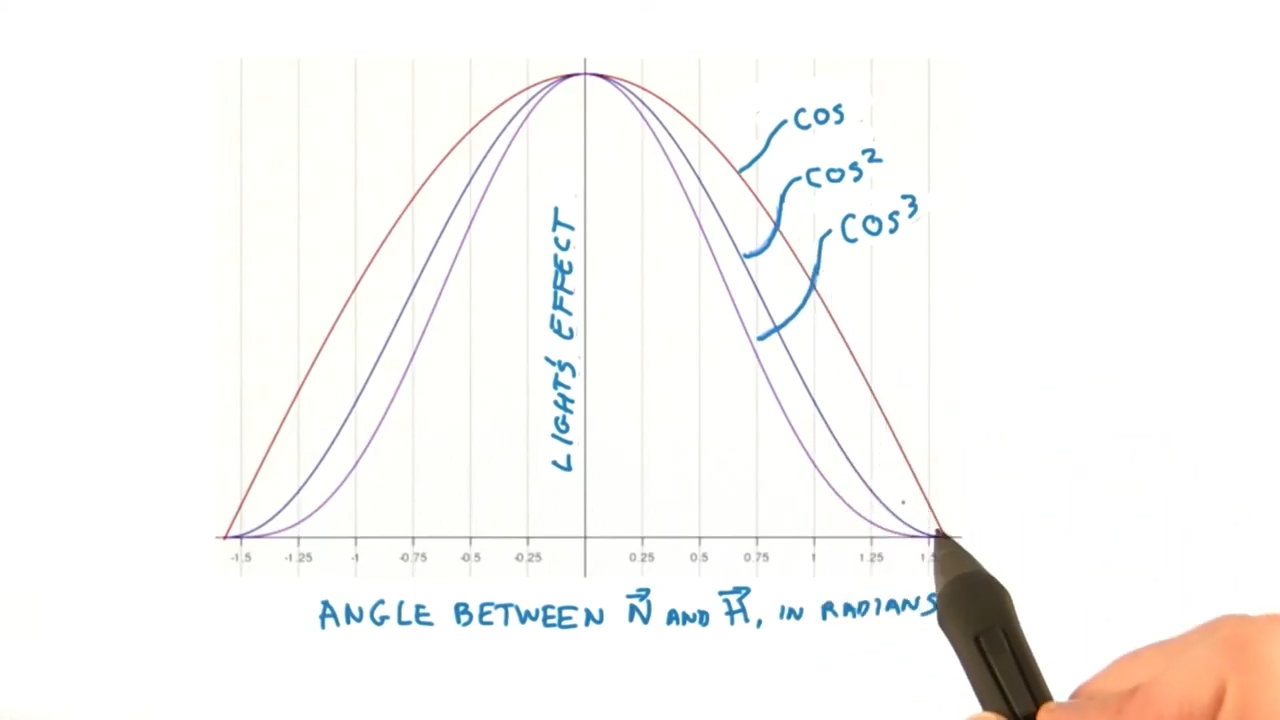 COS
COS²
COS³
LIGHT'S EFFECT
-1.5 -1.25 -1 -0.75 -0.5 -0.25 0.25 0.5 0.75 1 1.25
ANGLE BETWEEN N⃗ AND H⃗, IN RADIANS